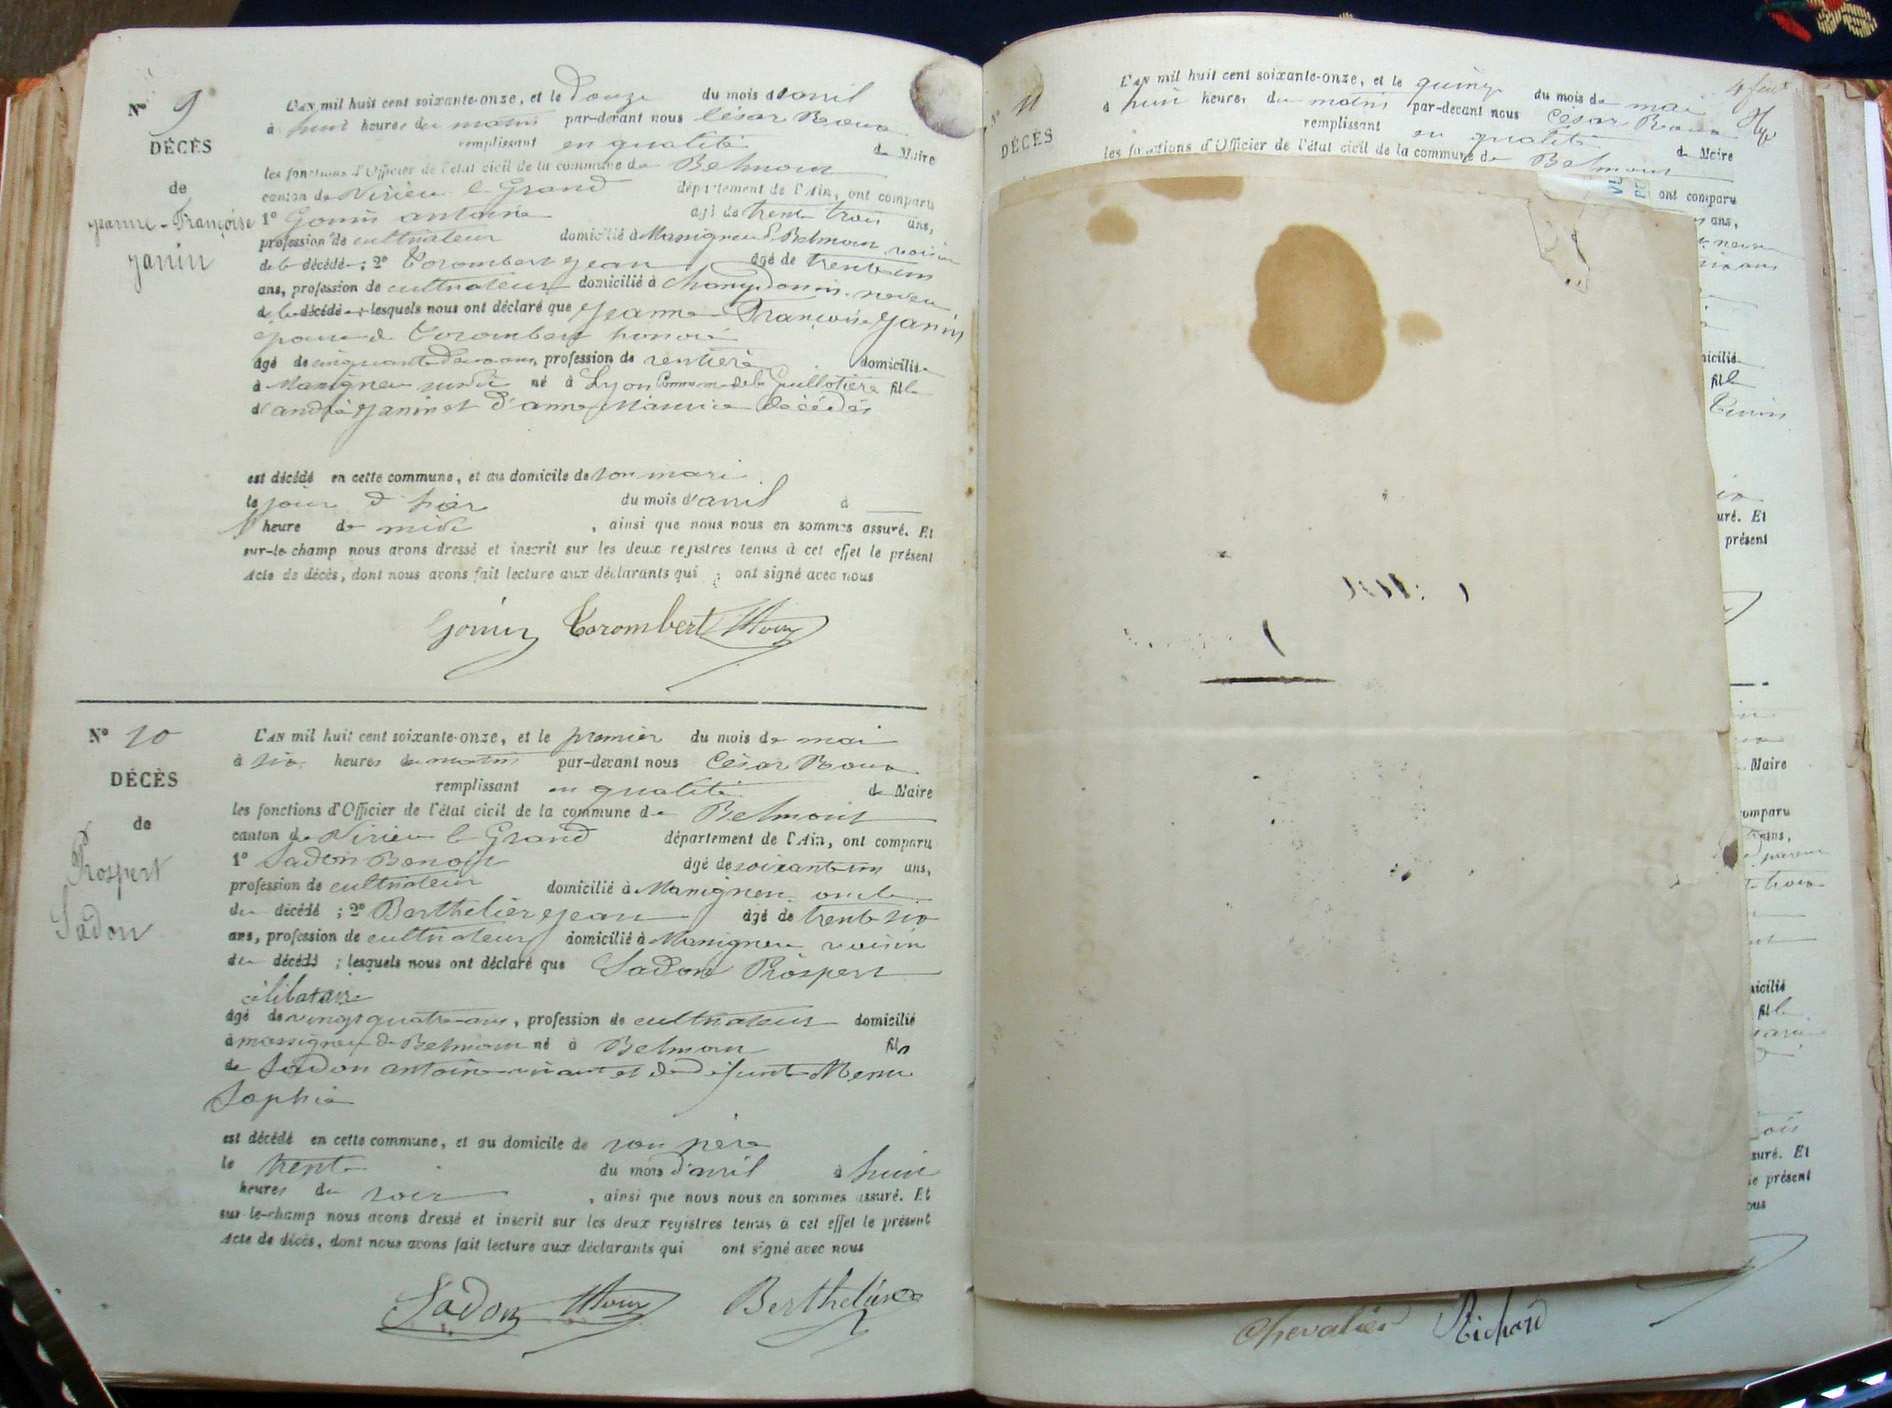 N° 9
DÉCÈS
de
Jeanne-Françoise
Janin
L'AN mil huit cent soixante-onze, et le douze du mois d'avril
à huit heures du matin par-devant nous César
remplissant en qualité de Maire
les fonctions d'Officier de l'état civil de la commune de Belmont
canton de Virieu le Grand département de l'Ain, ont comparu
1° Gonin antoine âgé de trente trois ans,
profession de cultivateur domicilié à Massigneu de Belmont voisin
de la décédée ; 2° Corombert jean âgé de trente un
ans, profession de cultivateur domicilié à neveu
de la décédée ; lesquels nous ont déclaré que jeanne Françoise Janin
épouse de Corombert honoré
âgé de cinquante deux ans, profession de rentière domicilié
à Massigneu susdit né à Lyon Commune de la Guillotière fille
d'andré Janin et d'anne Maurice décédés
est décédé en cette commune, et au domicile de son mari
le jour d'hier du mois d'avril à
l'heure de midi , ainsi que nous nous en sommes assuré. Et
sur-le-champ nous avons dressé et inscrit sur les deux registres tenus à cet effet le présent
Acte de décès, dont nous avons fait lecture aux déclarants qui ont signé avec nous
Gonin Corombert
N° 10
DÉCÈS
de
Prospert
Sadon
L'AN mil huit cent soixante-onze, et le premier du mois de mai
à six heures du matin par-devant nous César
remplissant en qualité de Maire
les fonctions d'Officier de l'état civil de la commune de Belmont
canton de Virieu le Grand département de l'Ain, ont comparu
1° Sadon Benoit âgé de soixante un ans,
profession de cultivateur domicilié à Massigneu oncle
du décédé ; 2° Berthelier jean âgé de trente six
ans, profession de cultivateur domicilié à Massigneu voisin
du décédé ; lesquels nous ont déclaré que Sadon Prospert
célibataire
âgé de vingt quatre ans, profession de cultivateur domicilié
à massigneu de Belmont né à Belmont fils
de Sadon antoine vivant et de défunte
Sophie
est décédé en cette commune, et au domicile de son père
le trente du mois d'avril à huit
heures du soir , ainsi que nous nous en sommes assuré. Et
sur-le-champ nous avons dressé et inscrit sur les deux registres tenus à cet effet le présent
Acte de décès, dont nous avons fait lecture aux déclarants qui ont signé avec nous
Sadon Berthelier
N° 11
DÉCÈS
L'AN mil huit cent soixante-onze, et le quinze du mois de mai
à huit heures du matin par-devant nous César
remplissant en qualité de Maire
les fonctions d'Officier de l'état civil de la commune de Belmont
ont comparu
ans,
fille
uré. Et
présent
Maire
comparu
ans,
icilié
fille
suré. Et
le présent
ous
Chevalier Richard